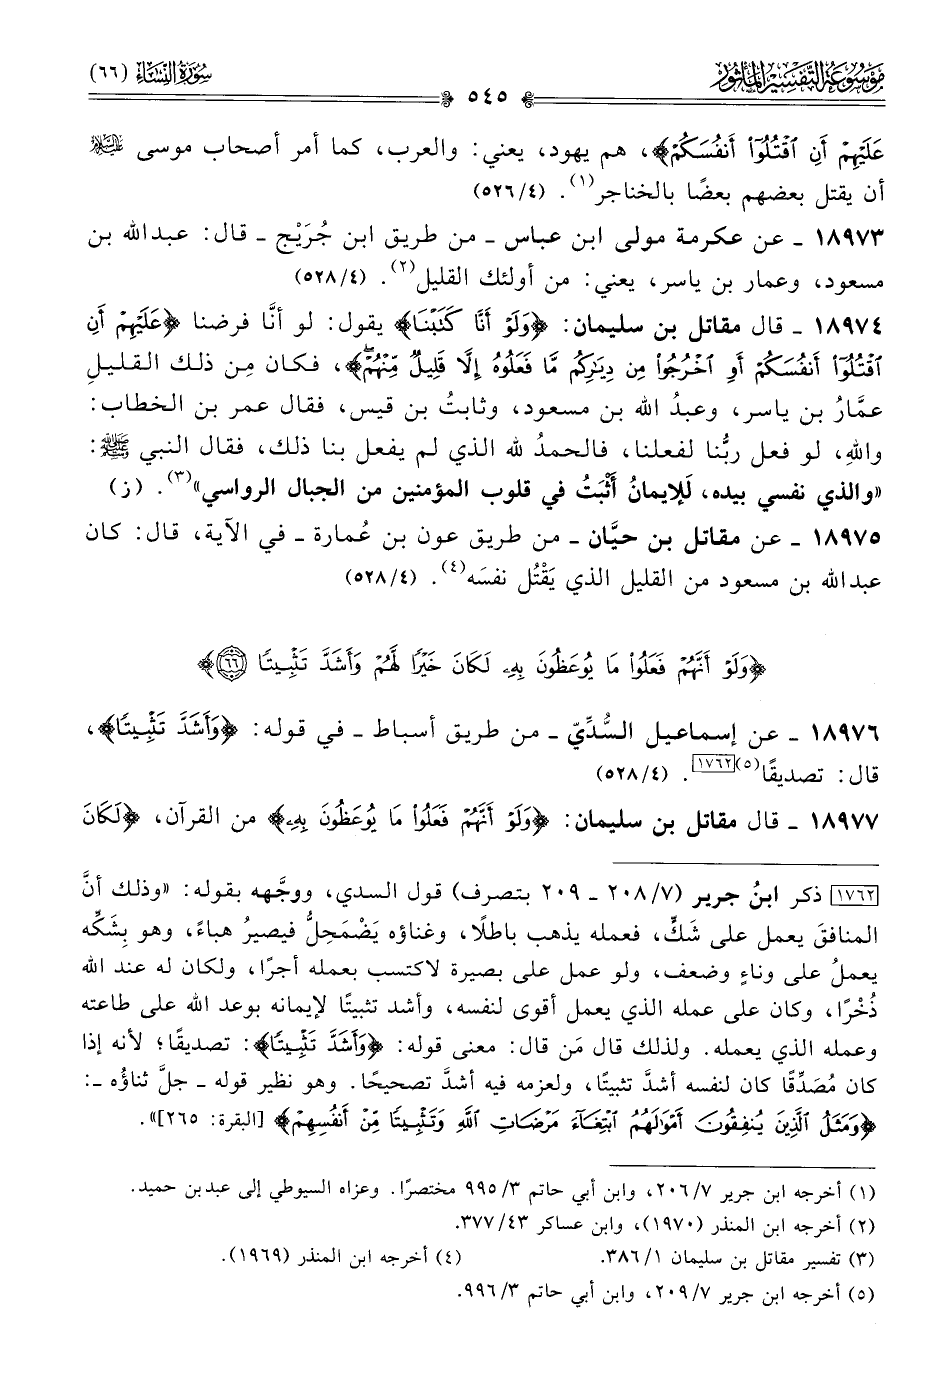 مَوْسُوعَةُ التَّفْسِيرِ المَأْثُورِ
٥٤٥
سُورَةُ النِّسَاءِ (٦٦)
عَلَيْهِمْ أَنِ ٱقْتُلُوٓا۟ أَنفُسَكُمْ﴾، هم يهود، يعني: والعرب، كما أمر أصحاب موسى عليه السلام
أن يقتل بعضهم بعضًا بالخناجر(١). (٤/ ٥٢٦)
١٨٩٧٣ ـ عن عكرمة مولى ابن عباس ـ من طريق ابن جُرَيْج ـ قال: عبدالله بن
مسعود، وعمار بن ياسر، يعني: من أولئك القليل(٢). (٤/ ٥٢٨)
١٨٩٧٤ ـ قال مقاتل بن سليمان: ﴿وَلَوْ أَنَّا كَتَبْنَا﴾ يقول: لو أنَّا فرضنا ﴿عَلَيْهِمْ أَنِ
ٱقْتُلُوٓا۟ أَنفُسَكُمْ أَوِ ٱخْرُجُوا۟ مِن دِيَٰرِكُم مَّا فَعَلُوهُ إِلَّا قَلِيلٌ مِّنْهُمْۖ﴾، فكان مِن ذلك القليلِ
عمَّارُ بن ياسر، وعبدُ الله بن مسعود، وثابتُ بن قيس، فقال عمر بن الخطاب:
واللهِ، لو فعل ربُّنا لفعلنا، فالحمدُ لله الذي لم يفعل بنا ذلك، فقال النبي ﷺ:
«والذي نفسي بيده، لَلإيمانُ أثْبَتُ في قلوب المؤمنين من الجبال الرواسي»(٣). (ز)
١٨٩٧٥ ـ عن مقاتل بن حيَّان ـ من طريق عون بن عُمارة ـ في الآية، قال: كان
عبدالله بن مسعود من القليل الذي يَقْتُل نفسَه(٤). (٤/ ٥٢٨)
﴿وَلَوْ أَنَّهُمْ فَعَلُوا۟ مَا يُوعَظُونَ بِهِۦ لَكَانَ خَيْرًا لَّهُمْ وَأَشَدَّ تَثْبِيتًا ٦٦﴾
١٨٩٧٦ ـ عن إسماعيل السُّدِّيّ ـ من طريق أسباط ـ في قوله: ﴿وَأَشَدَّ تَثْبِيتًا﴾،
قال: تصديقًا(٥)[١٧٦٢]. (٤/ ٥٢٨)
١٨٩٧٧ ـ قال مقاتل بن سليمان: ﴿وَلَوْ أَنَّهُمْ فَعَلُوا۟ مَا يُوعَظُونَ بِهِۦ﴾ من القرآن، ﴿لَكَانَ
[١٧٦٢] ذكر ابنُ جرير (٧/ ٢٠٨ ـ ٢٠٩ بتصرف) قول السدي، ووجَّهه بقوله: «وذلك أنَّ
المنافقَ يعمل على شكٍّ، فعمله يذهب باطلًا، وغناؤه يَضْمَحِلُّ فيصيرُ هباءً، وهو بِشَكِّه
يعملُ على وناءٍ وضعف، ولو عمل على بصيرة لاكتسب بعمله أجرًا، ولكان له عند الله
ذُخْرًا، وكان على عمله الذي يعمل أقوى لنفسه، وأشد تثبيتًا لإيمانه بوعد الله على طاعته
وعمله الذي يعمله. ولذلك قال مَن قال: معنى قوله: ﴿وَأَشَدَّ تَثْبِيتًا﴾: تصديقًا؛ لأنه إذا
كان مُصَدِّقًا كان لنفسه أشدَّ تثبيتًا، ولعزمه فيه أشدَّ تصحيحًا. وهو نظير قوله ـ جلَّ ثناؤه ـ:
﴿وَمَثَلُ ٱلَّذِينَ يُنفِقُونَ أَمْوَٰلَهُمُ ٱبْتِغَآءَ مَرْضَاتِ ٱللَّهِ وَتَثْبِيتًا مِّنْ أَنفُسِهِمْ﴾ [البقرة: ٢٦٥]».
(١) أخرجه ابن جرير ٧/ ٢٠٦، وابن أبي حاتم ٣/ ٩٩٥ مختصرًا. وعزاه السيوطي إلى عبد بن حميد.
(٢) أخرجه ابن المنذر (١٩٧٠)، وابن عساكر ٤٣/ ٣٧٧.
(٣) تفسير مقاتل بن سليمان ١/ ٣٨٦. (٤) أخرجه ابن المنذر (١٩٦٩).
(٥) أخرجه ابن جرير ٧/ ٢٠٩، وابن أبي حاتم ٣/ ٩٩٦.